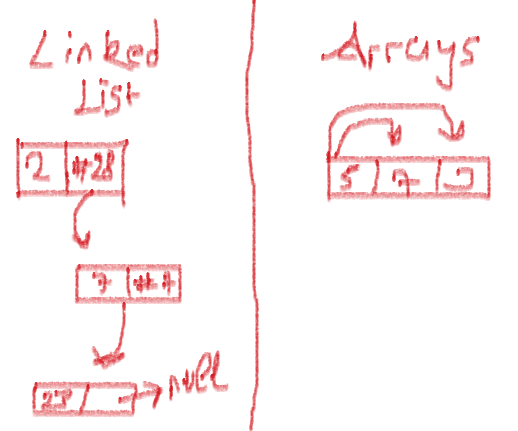 Linked
List
2 #28
7
null
Arrays
5 7